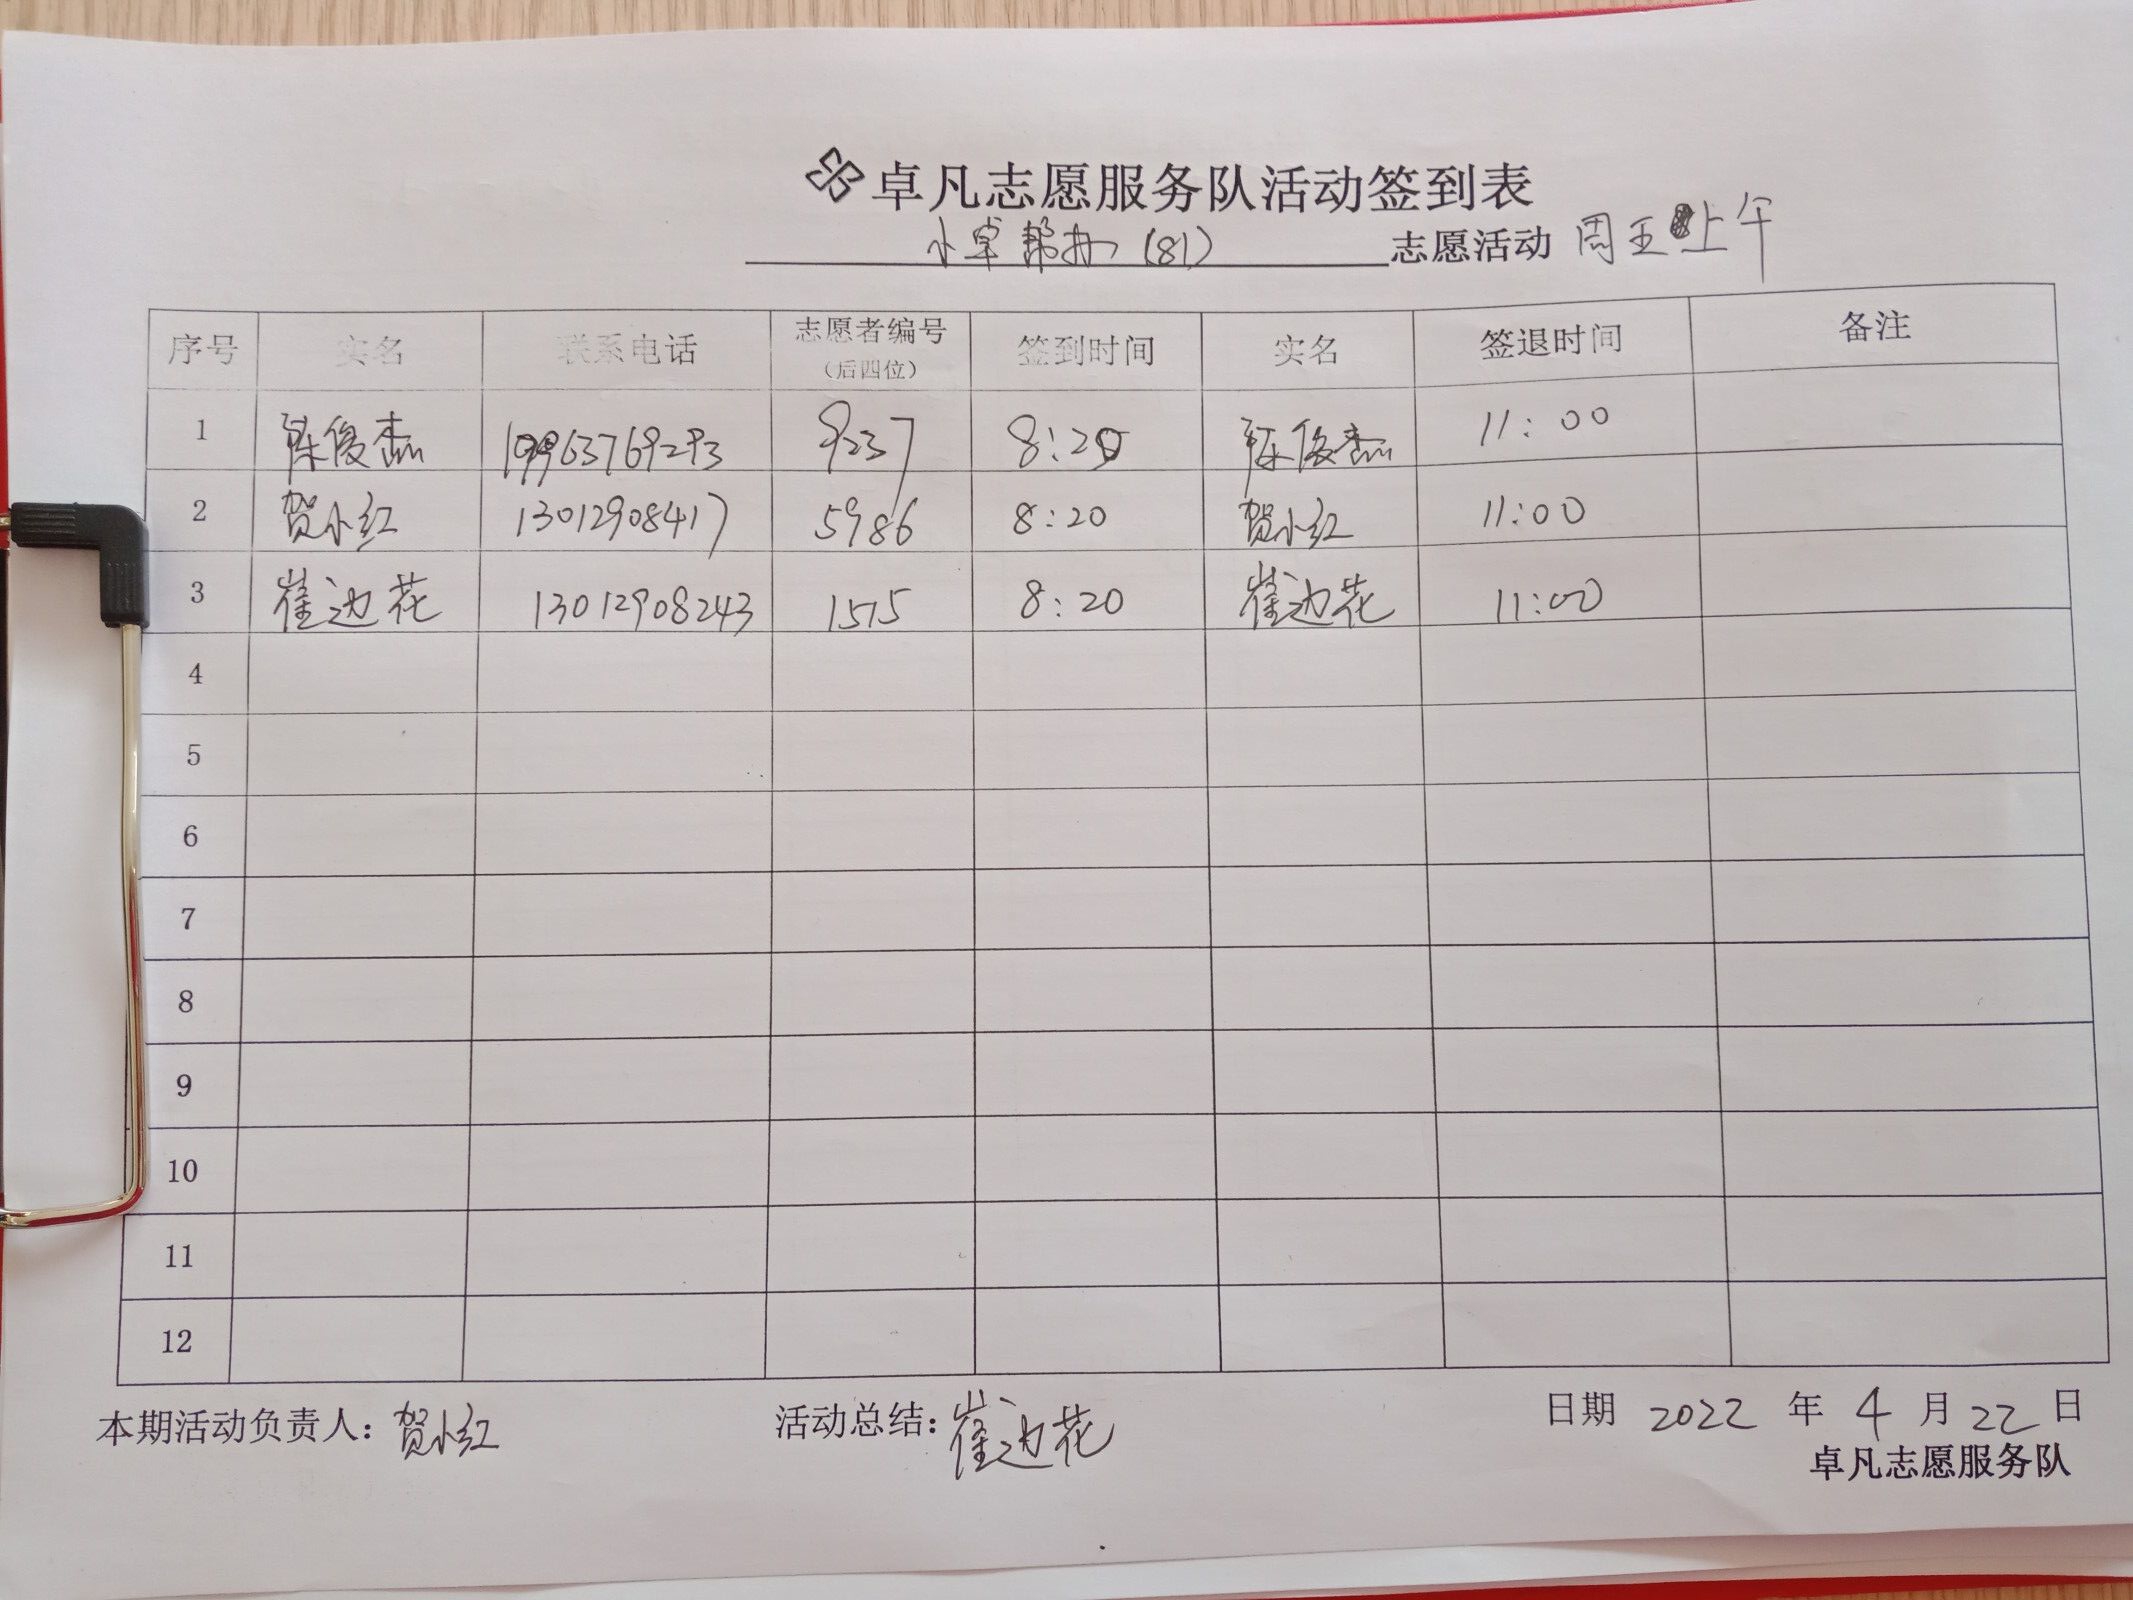 卓凡志愿服务队活动签到表
小卓帮办(81) 志愿活动 周五上午
序号 实名 联系电话 志愿者编号(后四位) 签到时间 实名 签退时间 备注
1 陈俊杰 9237 8:20 陈俊杰 11:00
2 贺小红 13012908417 5986 8:20 贺小红 11:00
3 崔边花 13012908243 1515 8:20 崔边花 11:00
4
5
6
7
8
9
10
11
12
本期活动负责人:贺小红 活动总结:崔边花 日期 2022 年 4 月 22 日
卓凡志愿服务队